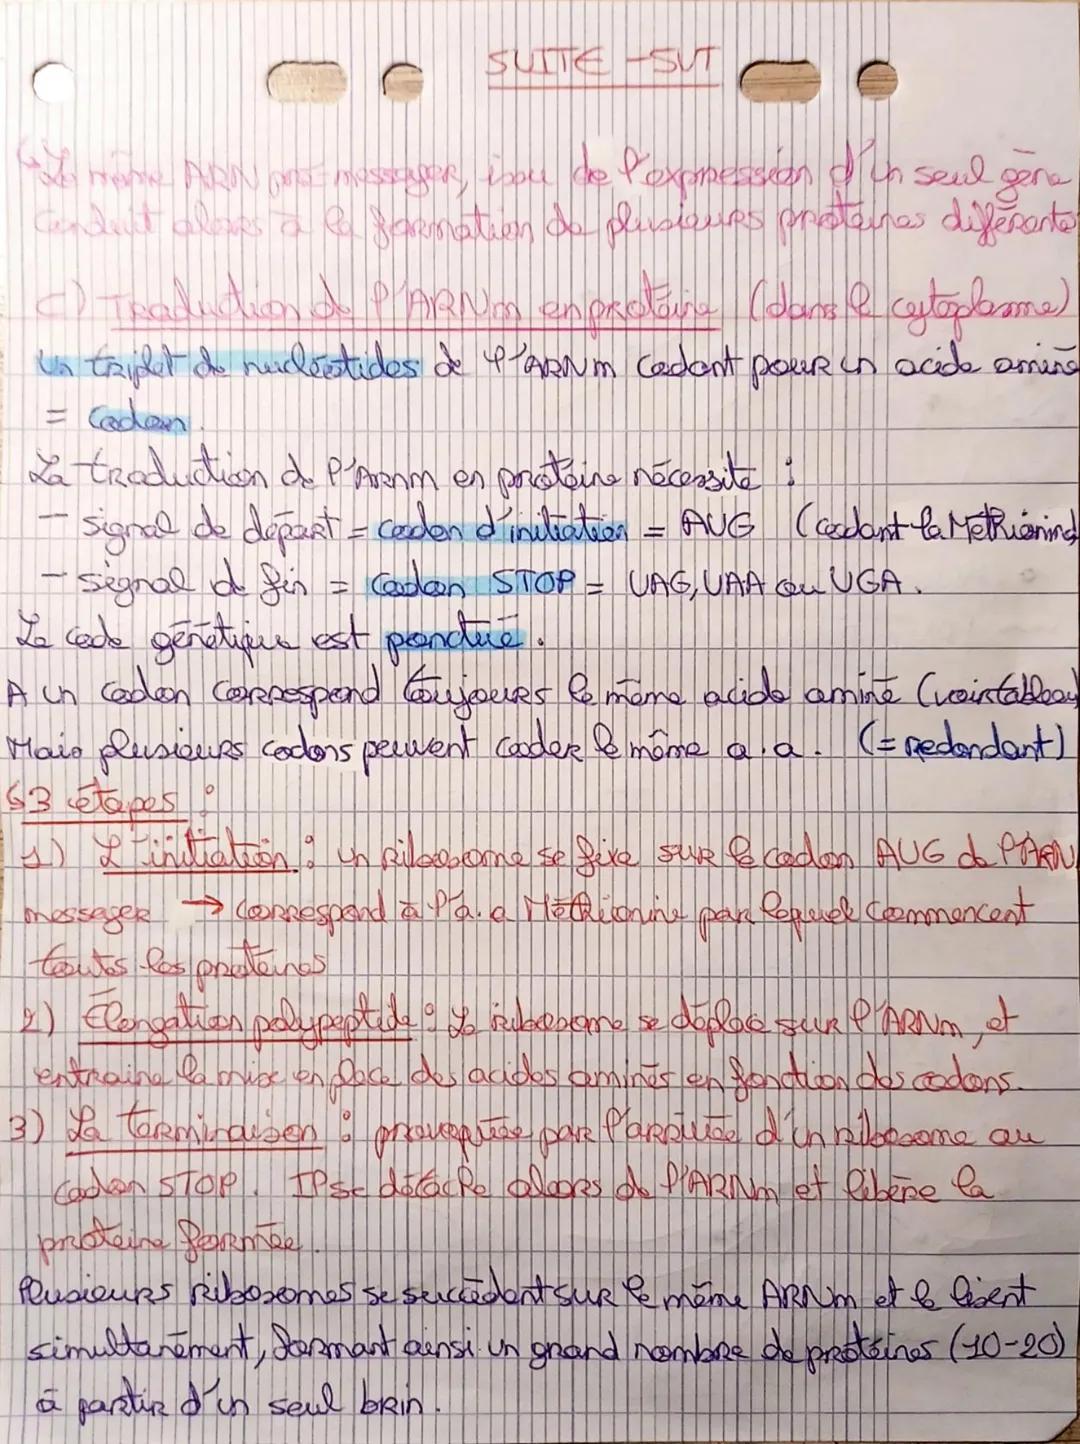 SUITE - SVT
↳ Le même ARN pré-messager, issu de l'expression d'un seul gène
conduit alors à la formation de plusieurs protéines différentes
C) Traduction de l'ARNm en protéine (dans le cytoplasme)
Un triplet de nucléotides de l'ARNm codant pour un acide aminé
= codon.
La traduction de l'ARNm en protéine nécessite :
- signal de départ = codon d'initiation = AUG (codant la Méthionine)
- signal de fin = codon STOP = UAG, UAA ou UGA.
Le code génétique est ponctué.
A un codon correspond toujours le même acide aminé (voir tableau)
Mais plusieurs codons peuvent coder le même a.a. (= redondant)
↳ 3 étapes :
1) L'initiation : un ribosome se fixe sur le codon AUG de l'ARN
messager → correspond à l'a.a Méthionine par lequel commencent
toutes les protéines
2) Élongation polypeptide : Le ribosome se déplace sur l'ARNm, et
entraine la mise en place des acides aminés en fonction des codons.
3) La terminaison : provoquée par l'arrivée d'un ribosome au
codon STOP. Il se détache alors de l'ARNm et libère la
protéine formée.
Plusieurs ribosomes se succèdent sur le même ARNm et le lisent
simultanément, formant ainsi un grand nombre de protéines (10-20)
à partir d'un seul brin.